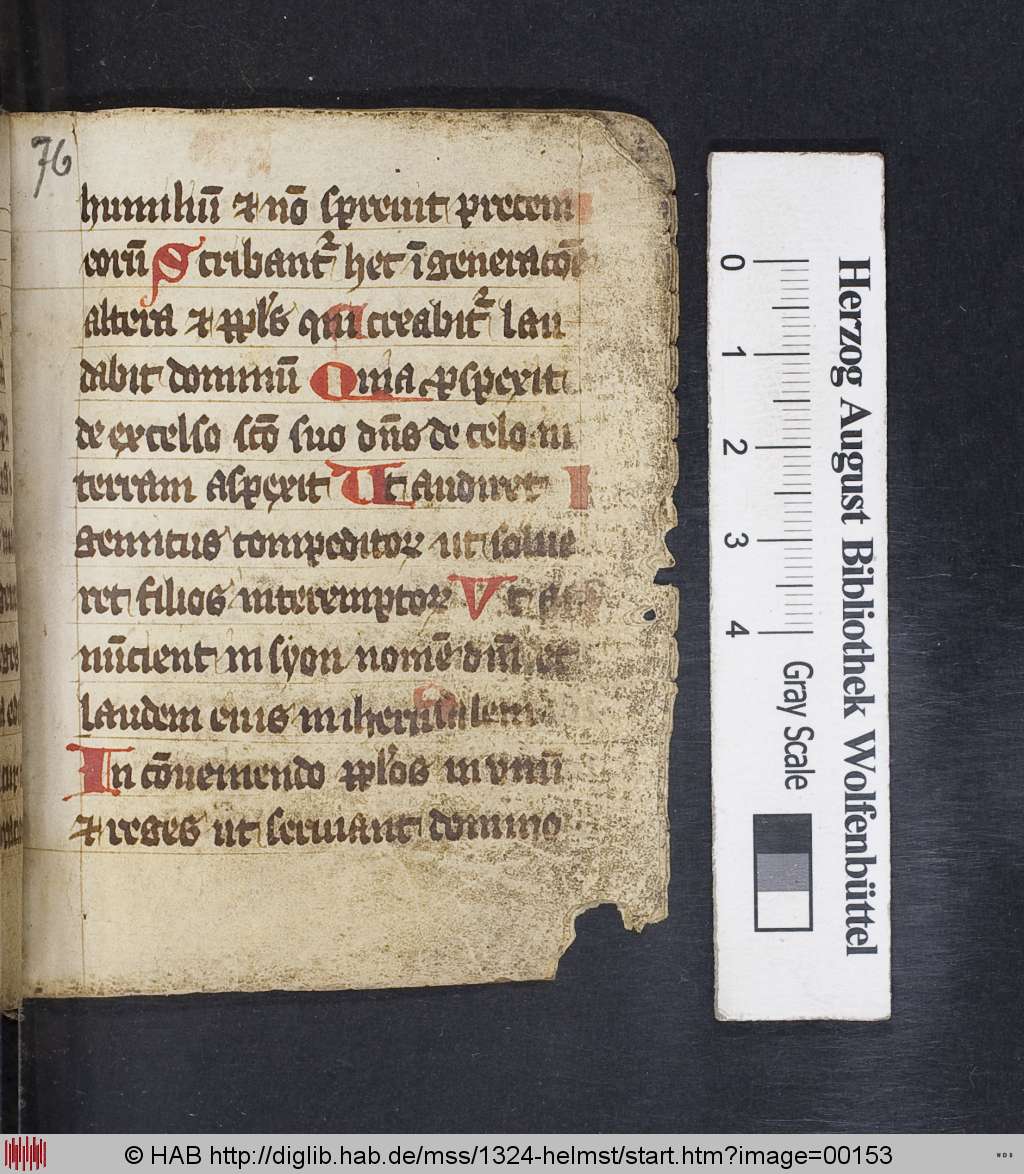 76
humiliū ⁊ nō spreuit precem
eorū Scribant᷑ hec ī generacōe
altera ⁊ ppl's qui creabit᷑ lau
dabit dominū Quia ꝓspexit
de excelso scō suo dn̄s de celo in
terram aspexit Ut audiret
gemitus compeditoꝝ ut solue
ret filios interemptoꝝ Vt
nūcient in syon nomē dn̄i et
laudem eius in iherusalem
In cōueniendo ppl'os in vnū
⁊ reges ut seruiant domino
0
1
2
3
4
Gray Scale
Herzog August Bibliothek Wolfenbüttel
© HAB http://diglib.hab.de/mss/1324-helmst/start.htm?image=00153